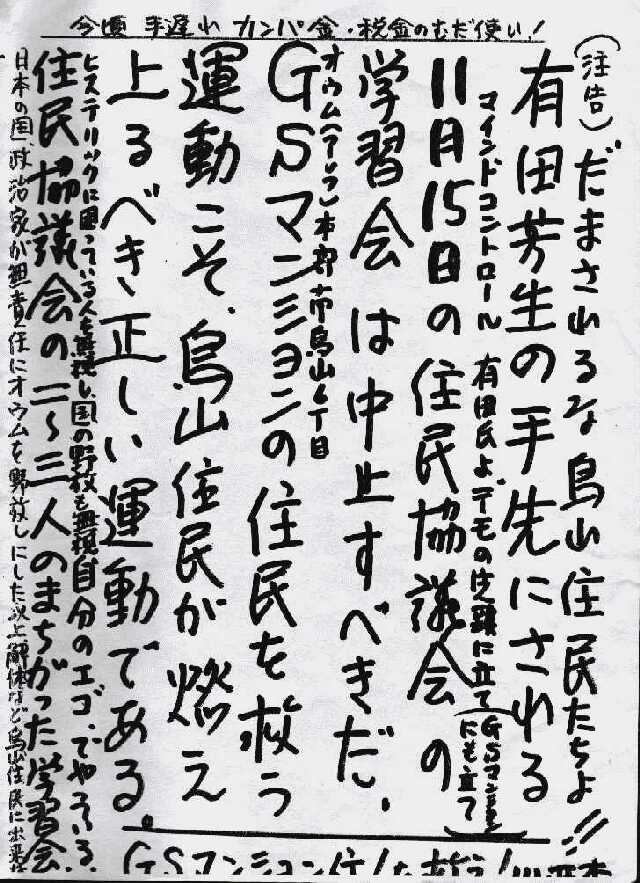 今頃 手遅れ カンパ金・税金のむだ使い!
(注告)だまされるな烏山住民たちよ!!
有田芳生の手先にされる
マインドコントロール 有田氏よデモの先頭に立て(GSマンションにも立て)
11月15日の住民協議会の
学習会は中止すべきだ、
オウム(アレフ)本部 南烏山6丁目
GSマンションの住民を救う
運動こそ、烏山住民が燃え
上るべき正しい運動である。
ヒステリックに困っている人を無視し、国の野放も無視、自分のエゴ、でやっている、
住民協議会の二〜三人のまちがった学習会、
日本の国、政治家が無責任にオウムを野放しにした以上解体など烏山住民に出来
GSマンション住人を救う!